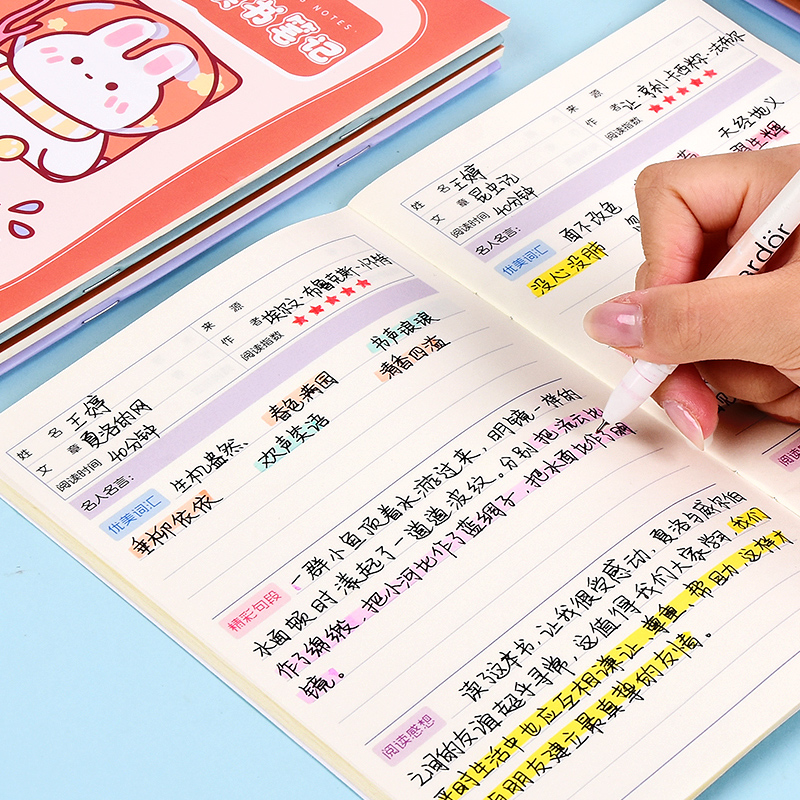 读书笔记
NOTES
姓 名 王婷
来 源
文 章 夏洛的网
作 者 埃尔文·布鲁克斯·怀特
阅读时间 40分钟
阅读指数 ★★★★★
名人名言:
优美词汇
生机盎然、
春色满园
书声琅琅
垂柳依依
欢声笑语
清香四溢
精彩句段
一群小鱼顶着水游过来,明镜一样的
水面顿时漾起了一道道波纹。分别把流云比
作了绵缎,把小河比作了蓝绸子,把水面比作了明
镜。
阅读感想
读了这本书,让我很受感动,夏洛与威尔伯
之间的友谊超乎寻常,这值得我们大家学习 我们
平时生活中也应互相谦让、尊重、帮助 这样才
与朋友建立最真挚的友情。
姓 名 王婷
来 源
文 章 昆虫记
作 者 让·亨利·卡西米尔·法布尔
阅读时间 40分钟
阅读指数 ★★★★★
名人名言:
优美词汇
面不改色
天经地义
没心没肺
生辉
阅读
ardör